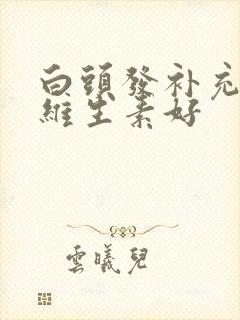 白頭發补充
維生素好
雲曦兒